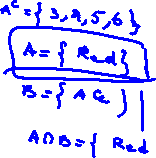 A^c = {3, 4, 5, 6}
A = { Red }
B = { Ace
A∩B = { Red